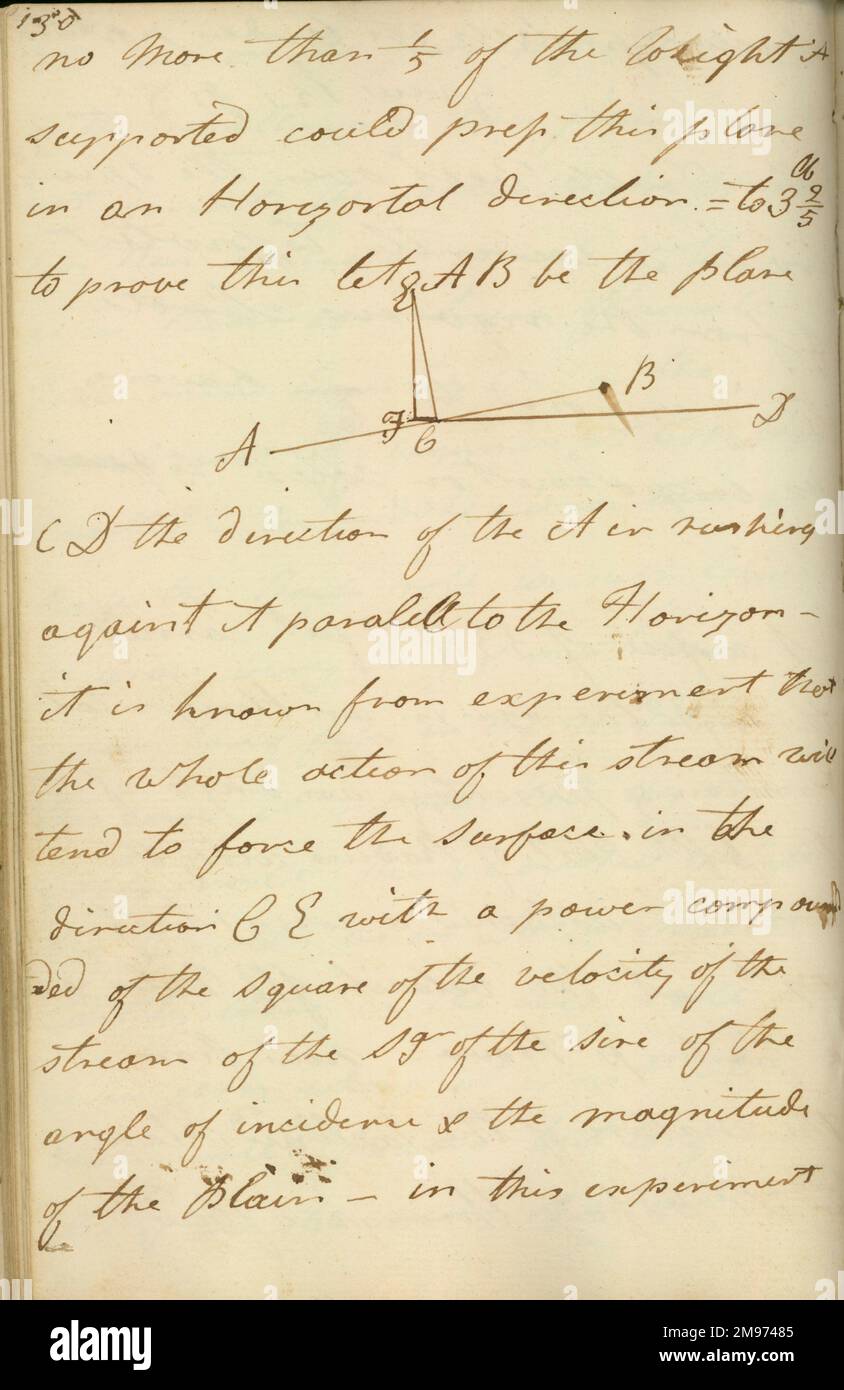 130
no more than 1/5 of the Weight A
supported could press this plane
in an Horizontal direction = to 3 2/5 lb
to prove this let A B be the plane
E
B
F
C
D
A
C D the direction of the Air rushing
against it paralell to the Horizon –
it is known from experiment that
the whole action of this stream will
tend to force the surface in the
direction C E with a power compoun
ded of the square of the velocity of the
stream of the sqr of the sine of the
angle of incidence & the magnitude
of the Plain – in this experiment
alamy
Image ID: 2M97485
www.alamy.com